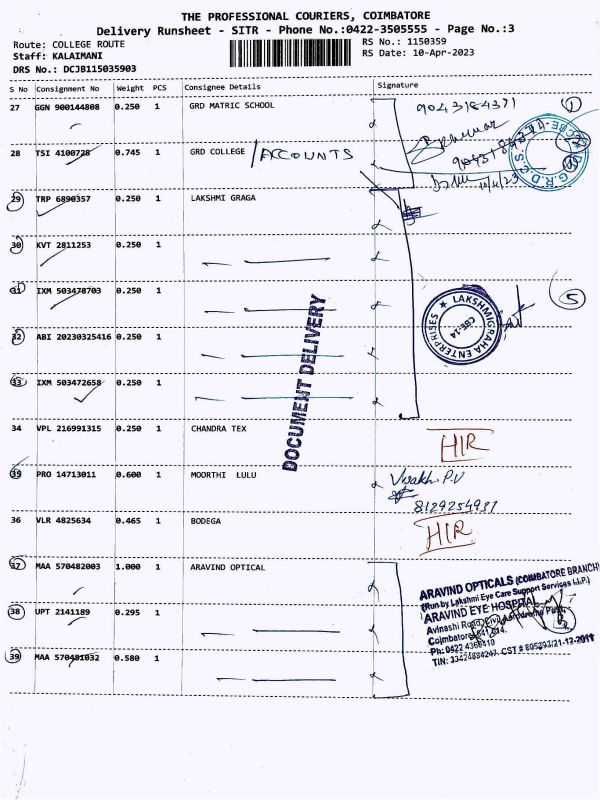 THE PROFESSIONAL COURIERS, COIMBATORE
Delivery Runsheet - SITR - Phone No.:0422-3505555 - Page No.:3
Route: COLLEGE ROUTE RS No.: 1150359
Staff: KALAIMANI RS Date: 10-Apr-2023
DRS No.: DCJB115035903
S No Consignment No Weight PCS Consignee Details Signature
27 GGN 900144808 0.250 1 GRD MATRIC SCHOOL 9043184371 1
28 TSI 4100728 0.745 1 GRD COLLEGE /ACCOUNTS
10/4/23
G.R.D.C.S.
29 TRP 6890357 0.250 1 LAKSHMI GRAGA
30 KVT 2811253 0.250 1
31 IXM 503478703 0.250 1 5
LAKSHMIGRAHA ENTERPRISES
CBE-14
32 ABI 20230325416 0.250 1
33 IXM 503472658 0.250 1
DOCUMENT DELIVERY
34 VPL 216991315 0.250 1 CHANDRA TEX HIR
35 PRO 14713011 0.600 1 MOORTHI LULU Visakh. P.V
8129254931
36 VLR 4825634 0.465 1 BODEGA HIR
37 MAA 570482003 1.000 1 ARAVIND OPTICAL
38 UPT 2141189 0.295 1
39 MAA 570481032 0.580 1
ARAVIND OPTICALS (COIMBATORE BRANCH)
(Run by Lakshmi Eye Care Support Services L.L.P.)
ARAVIND EYE HOSPITAL
Avinashi Road, Civil Aerodrome Post,
Coimbatore - 641 014.
Ph: 0422 4360410
CST # 895393/21-12-2011